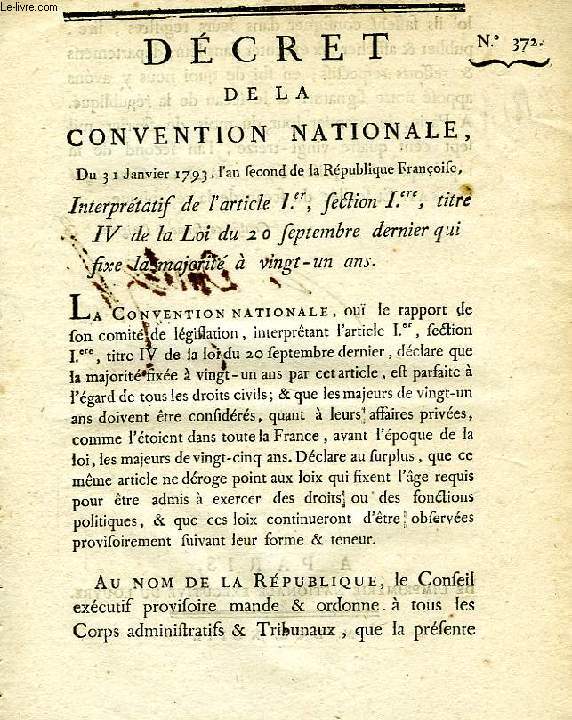 Le-livre.com
DÉCRET
N.° 372.
DE LA
CONVENTION NATIONALE,
Du 31 Janvier 1793, l'an ſecond de la République Françoiſe,
Interprétatif de l'article I.er, ſection I.ere, titre
IV de la Loi du 20 ſeptembre dernier qui
fixe la majorité à vingt-un ans.
LA CONVENTION NATIONALE, ouï le rapport de
ſon comité de légiſlation, interprétant l'article I.er, ſection
I.ere, titre IV de la loi du 20 ſeptembre dernier, déclare que
la majorité fixée à vingt-un ans par cet article, eſt parfaite à
l'égard de tous les droits civils; & que les majeurs de vingt-un
ans doivent être conſidérés, quant à leurs affaires privées,
comme l'étoient dans toute la France, avant l'époque de la
loi, les majeurs de vingt-cinq ans. Déclare au ſurplus, que ce
même article ne déroge point aux loix qui fixent l'âge requis
pour être admis à exercer des droits ou des fonctions
politiques, & que ces loix continueront d'être obſervées
proviſoirement ſuivant leur forme & teneur.
AU NOM DE LA RÉPUBLIQUE, le Conſeil
exécutif proviſoire mande & ordonne à tous les
Corps adminiſtratifs & Tribunaux, que la préſente